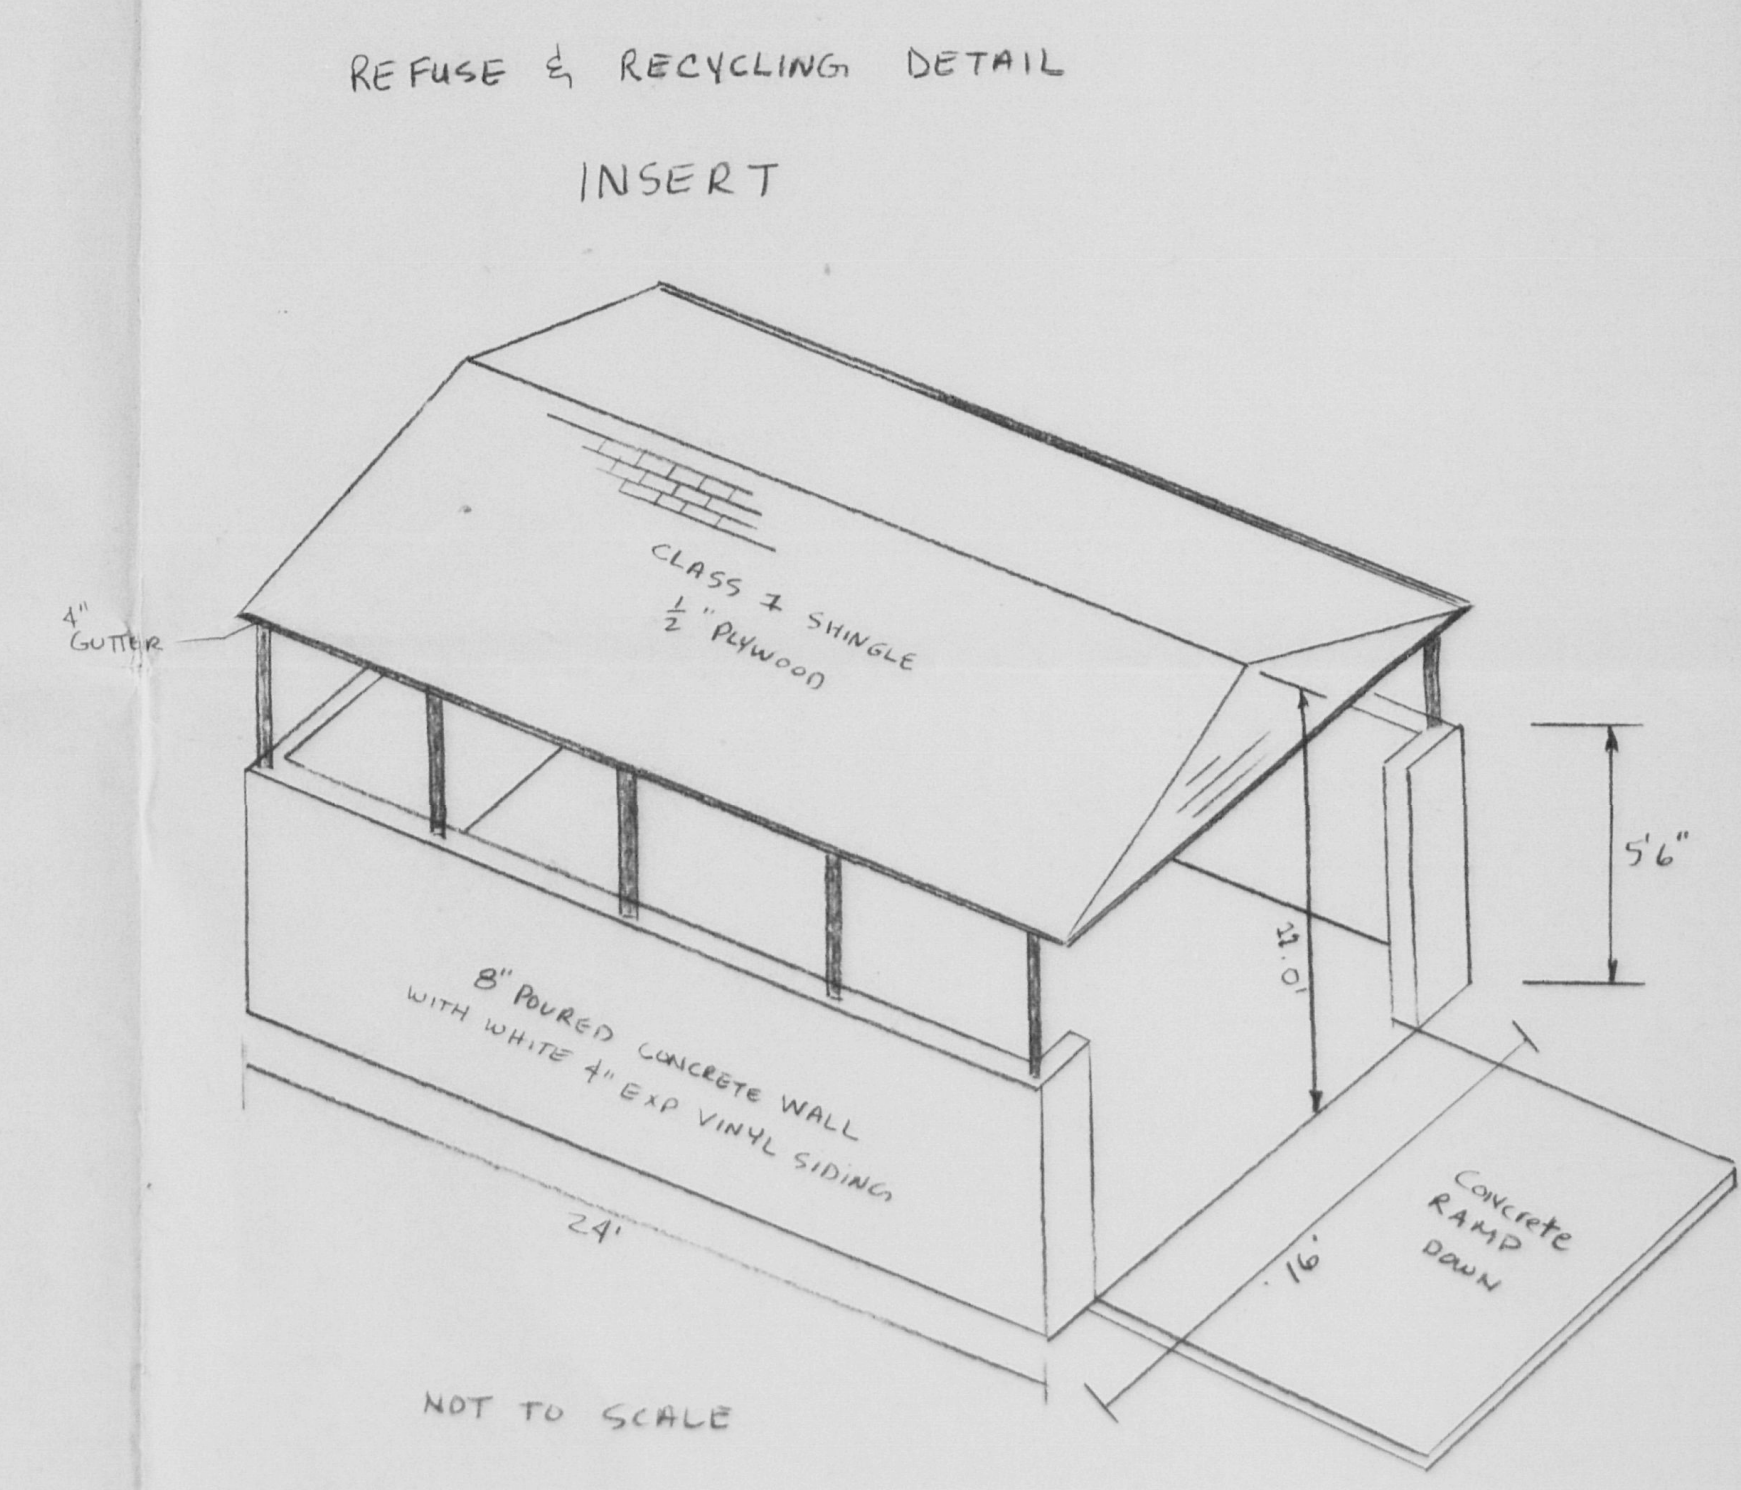 REFUSE & RECYCLING DETAIL
INSERT
CLASS 1 SHINGLE
1/2" PLYWOOD
4"
GUTTER
5'6"
11.0'
8" POURED CONCRETE WALL
WITH WHITE 4" EXP VINYL SIDING
24'
16'
Concrete
RAMP
DOWN
NOT TO SCALE